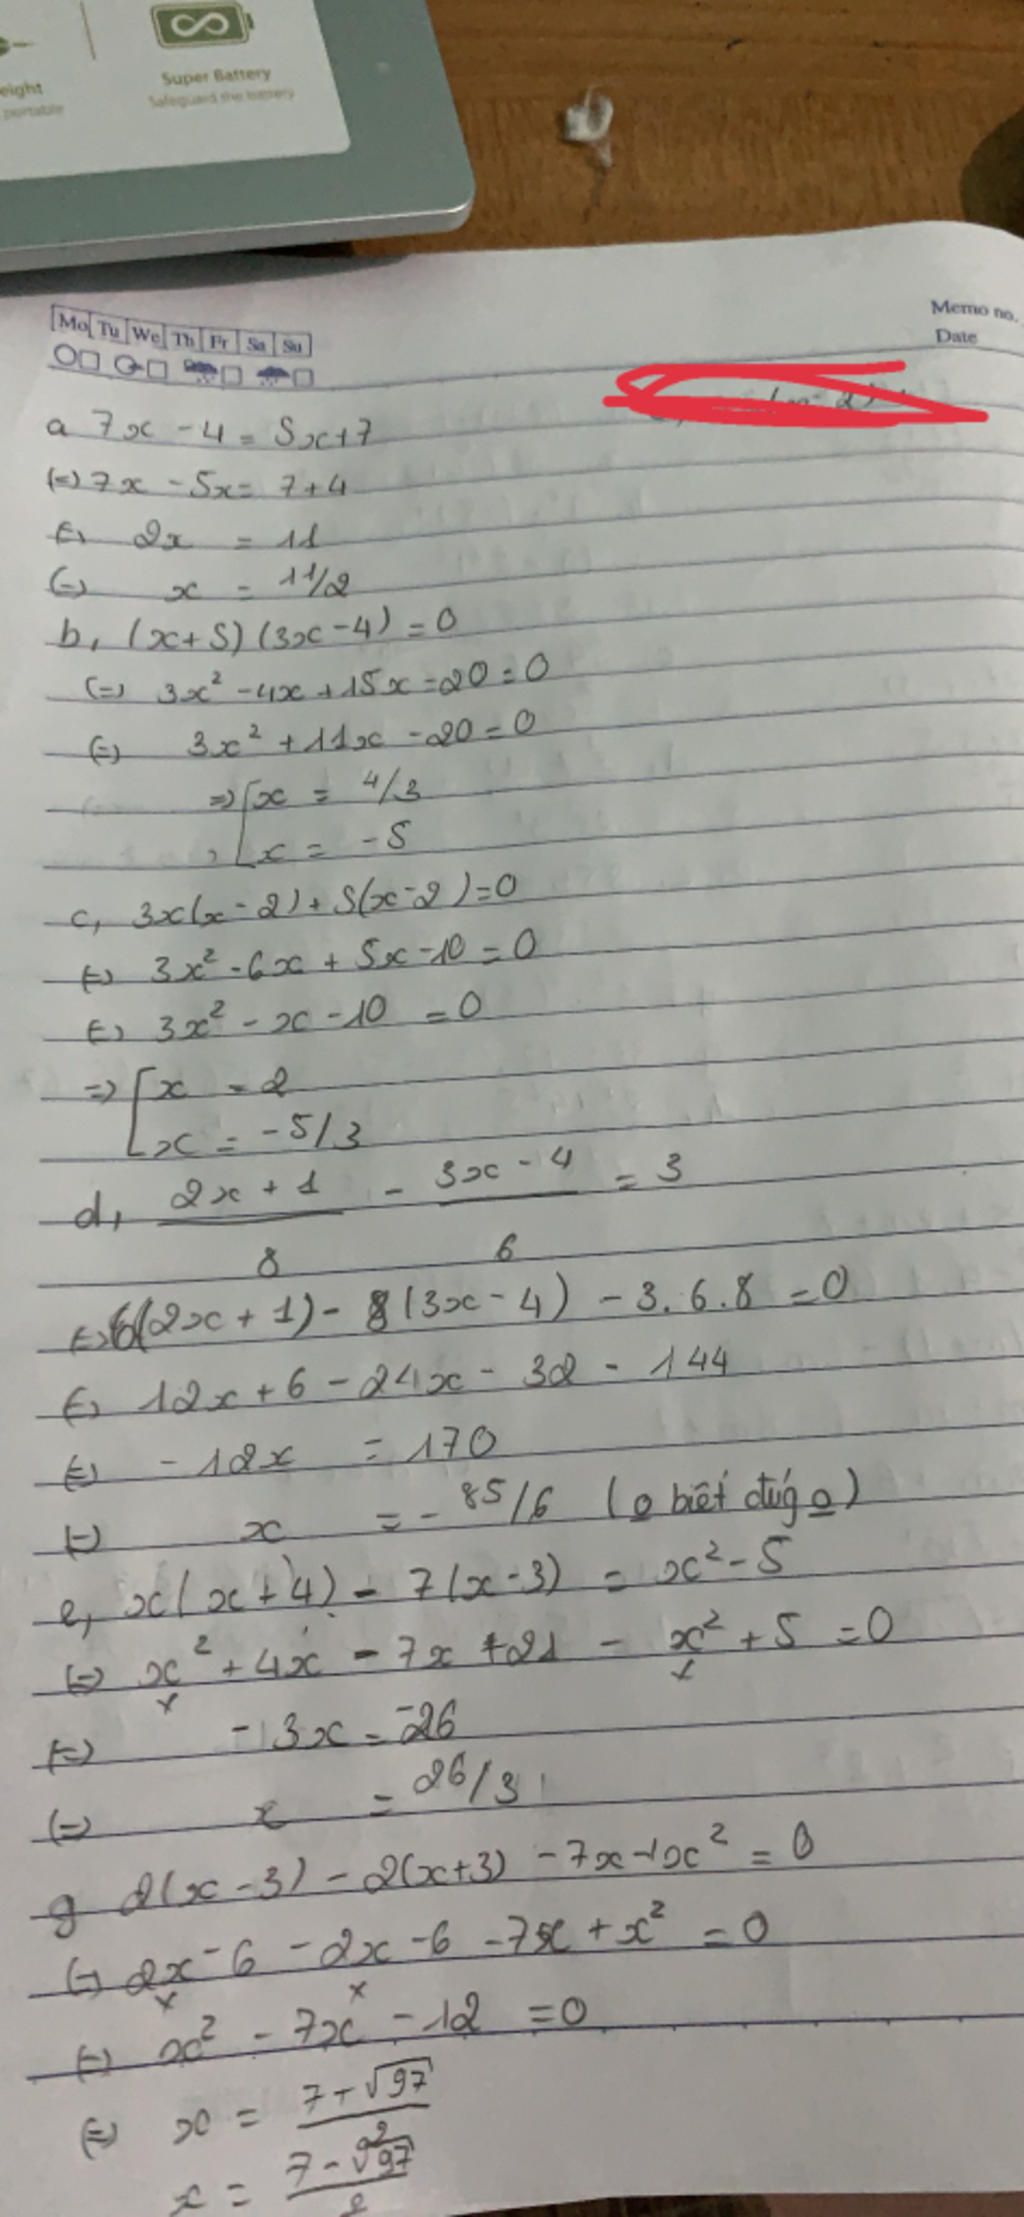 eight
portable
Super Battery
Safeguard the battery
Mo Tu We Th Fr Sa Su
Memo no.
Date
a 7x - 4 = 5x+7
(=) 7x - 5x = 7+4
(=) 2x = 11
(=) x = 11/2
b, (x+5) (3x-4) = 0
(=) 3x² - 4x + 15x - 20 = 0
(=) 3x² + 11x - 20 = 0
=> [ x = 4/3
x = -5
c, 3x(x-2) + 5(x-2) = 0
(=) 3x² - 6x + 5x - 10 = 0
(=) 3x² - x - 10 = 0
=> [ x = 2
x = -5/3
d, 2x + 1 - 3x - 4 = 3
8 6
(=) 6(2x + 1) - 8(3x - 4) - 3.6.8 = 0
(=) 12x + 6 - 24x - 32 - 144
(=) -12x = 170
(=) x = - 85/6 (o biết đúg o)
e, x(x+4) - 7(x-3) = x² - 5
(=) x² + 4x - 7x + 21 - x² + 5 = 0
(=) -3x = -26
(=) x = 26/3
g 2(x-3) - 2(x+3) - 7x + x² = 0
(=) 2x - 6 - 2x - 6 - 7x + x² = 0
(=) x² - 7x - 12 = 0
(=) x = 7+√97
2
x = 7-√97
2